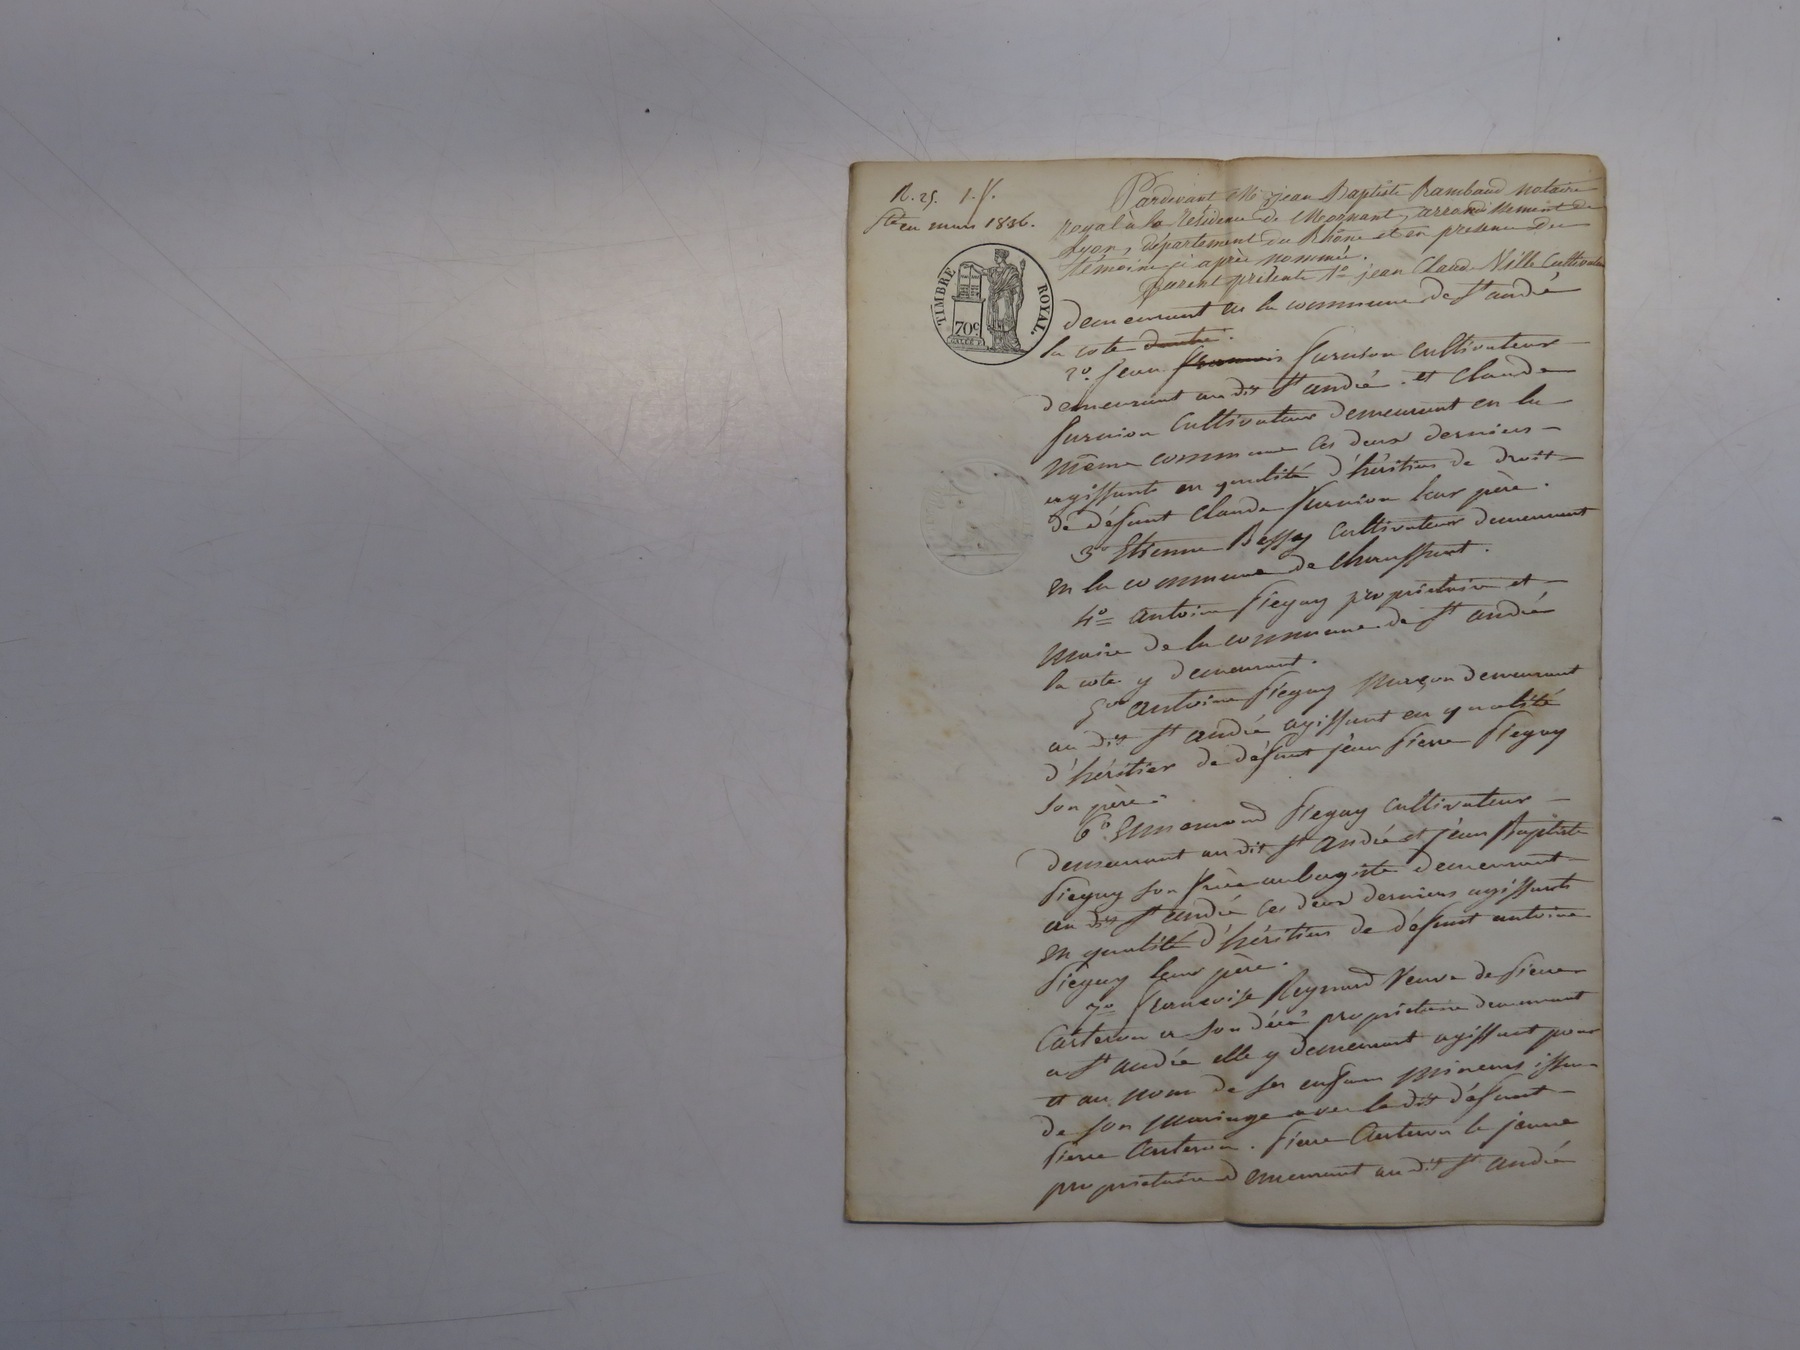 R. 25.
mars 1836.
TIMBRE ROYAL.
70c.
Pardevant Me jean Baptiste Rambaud notaire
royal à la Résidence de Mornant, arrondissement de
Lyon, département du Rhône et en presence des
témoins ci après nommés.
furent présents 1o jean Claude Ville Cultivateur
demeurant en la commune de St andré
la cote
2o. jean furnion cultivateur
demeurant audit St andré. et Claude
furnion Cultivateur demeurant en la
même commune Ces deux derniers
agissants en qualité d'héritiers de droit
de défunt Claude furnion leur père.
3o Etienne Bessay Cultivateur demeurant
en la commune de Chaussant.
4o antoine piegay propriétaire et
maire de la commune de St andré
la cote y demeurant.
5o antoine piegay maçon demeurant
au dit St andré agissant en qualité
d'héritier de défunt jean pierre piegay
son père
6o Ennemond piegay cultivateur
demeurant audit St andré et jean Baptiste
piegay son frère aubergiste demeurant
au dit St andré ces deux derniers agissants
en qualité d'héritiers de défunt antoine
piegay leur père.
7o francoise Reynard Veuve de pierre
Carteron a son décé propriétaire demeurant
a St andré elle y demeurant agissant pour
et au nom de ses enfans mineurs issu
de son mariage avec le dit défunt
pierre Carteron. pierre Carteron le jeune
propriétaire demeurant audit St andré